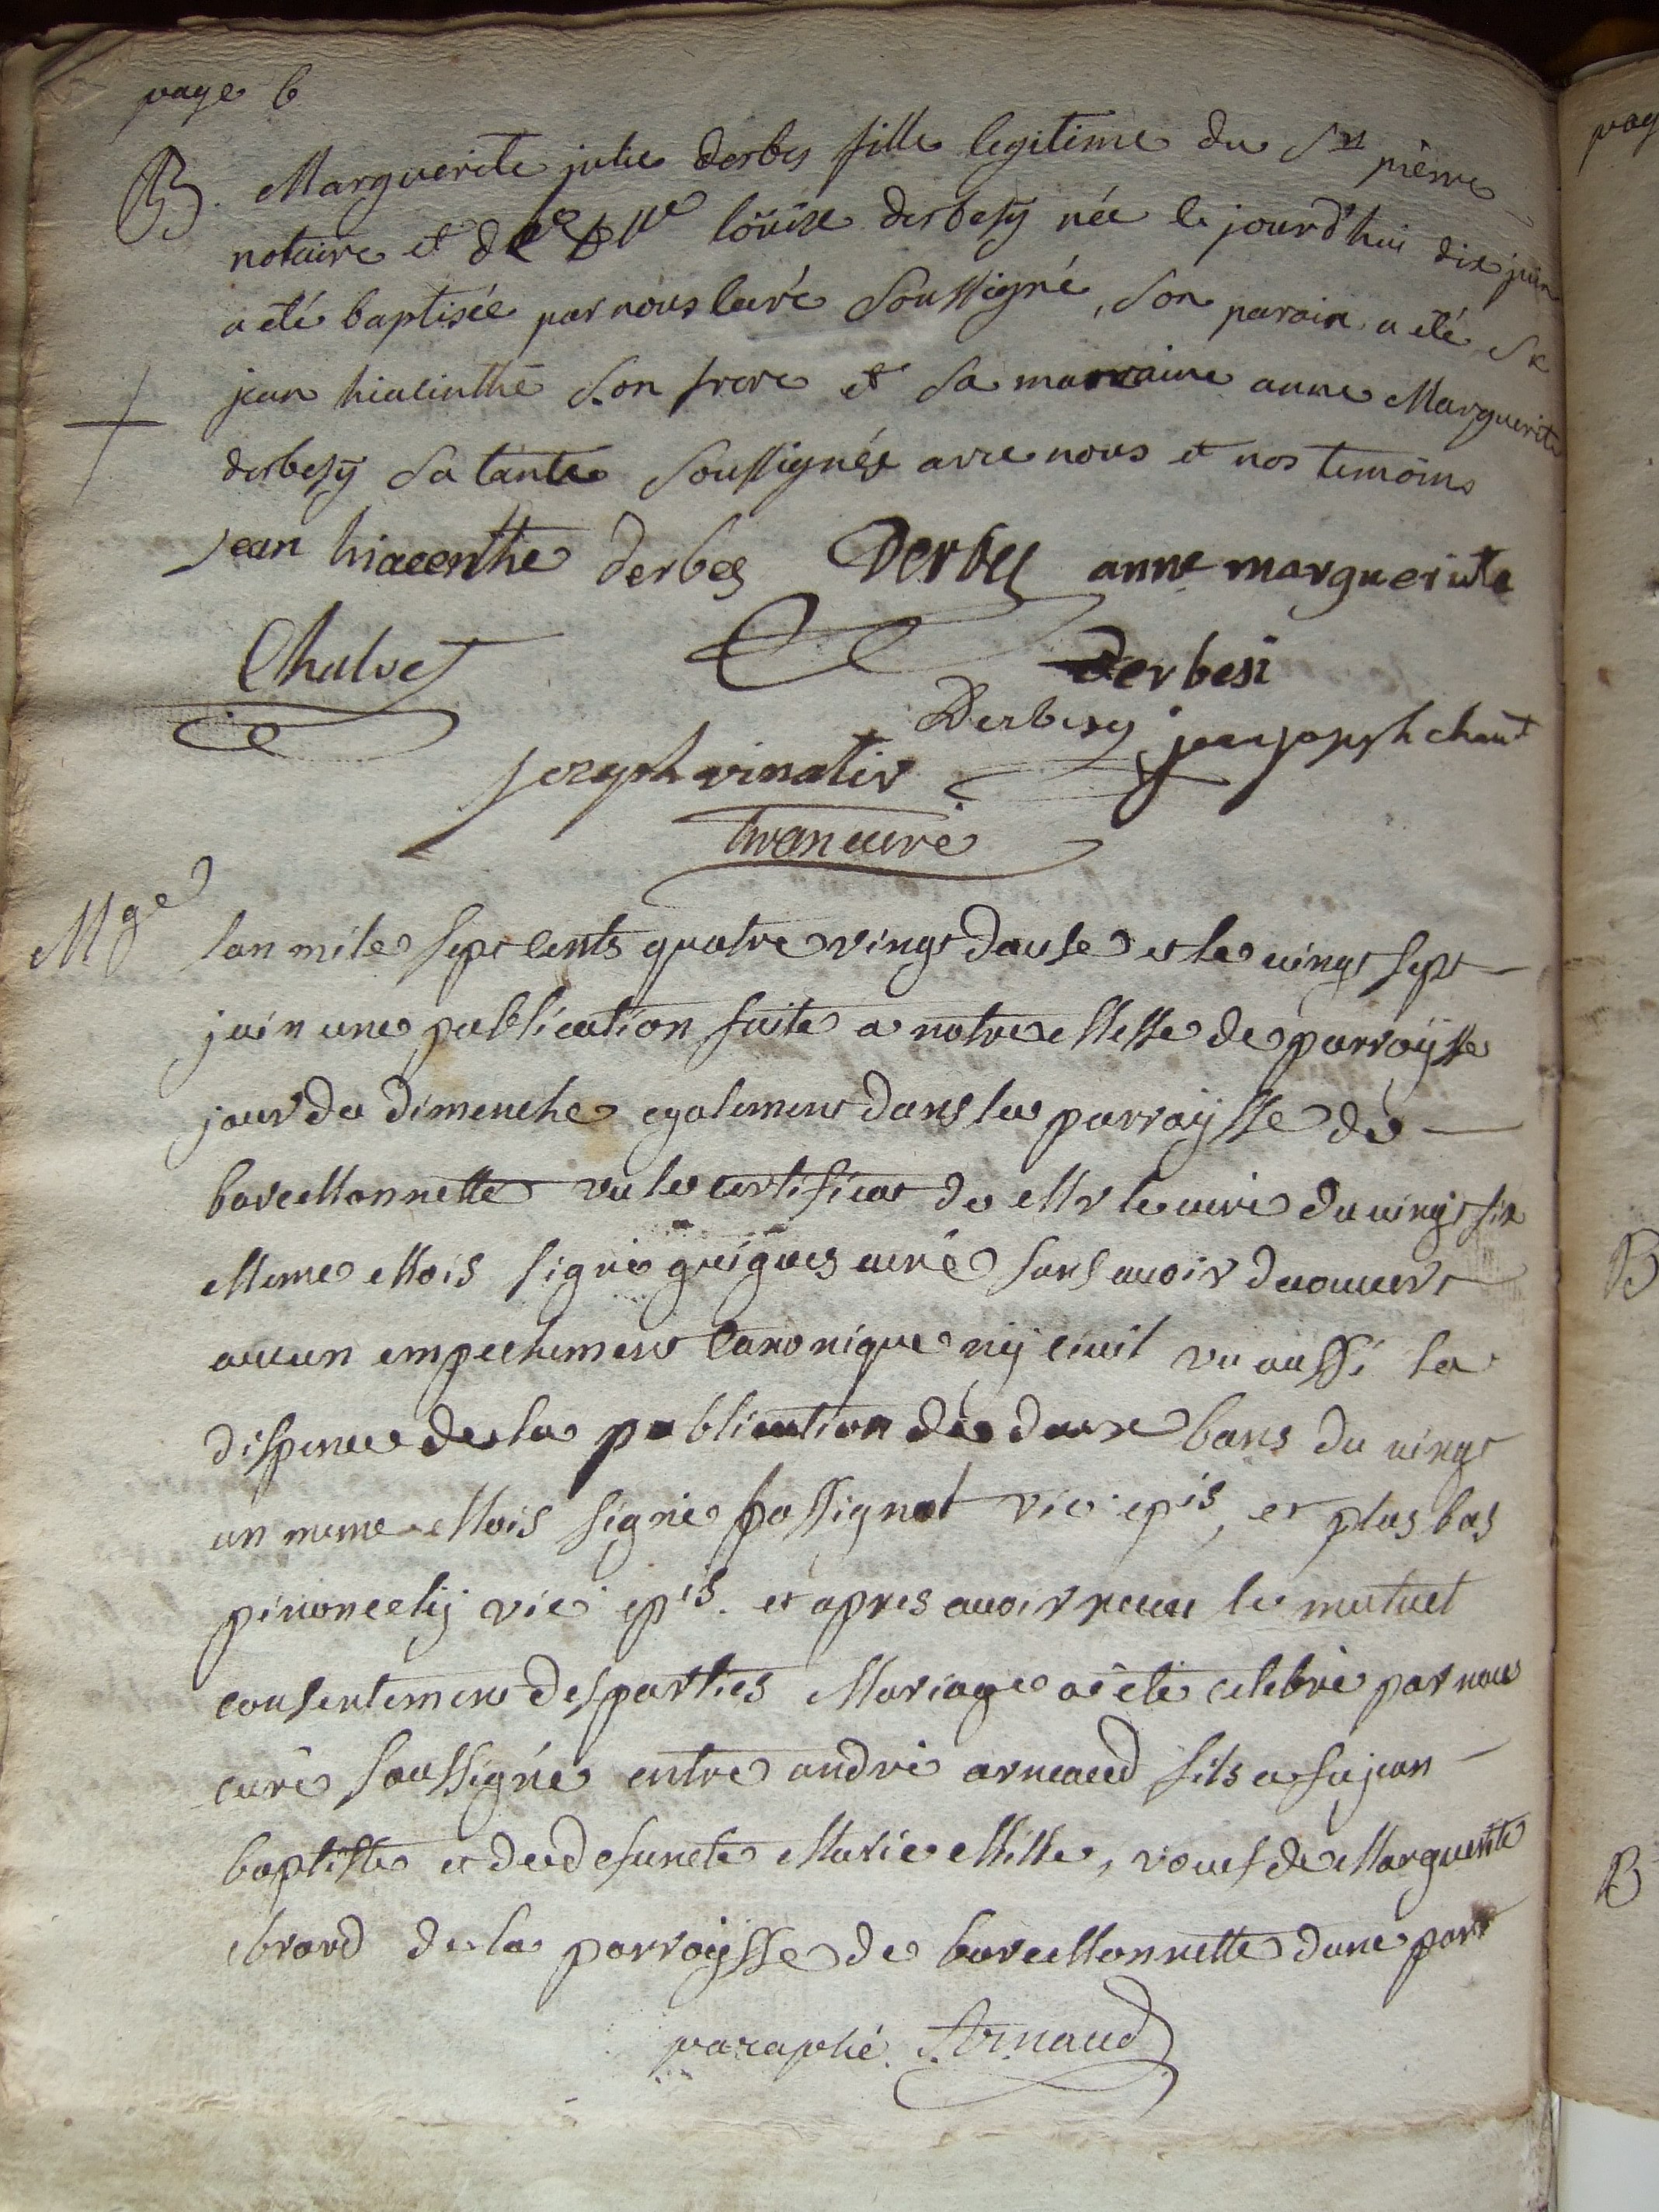 page 6
B. Marguerite julie derbes fille legitime du Sr pierre
notaire et de Dlle loüise derbesy née le jourd'hui dix juin
a eté baptisée par nous curé soussigné, son parain a eté Sr
jean hiacinthe son frere et sa marraine anne Marguerite
derbesy sa tante soussignés avec nous et nos temoins
jean hiacenthe derbes Derbes anne marguerite
Chalvet
derbesi
Derbesy jean joseph
joseph vinatier
curé
Mge
lan mile sept cents quatre vingt douse et le vingt sept
juin une publication faite a notre Messe de parroÿsse
jour de dimenche egalement dans la parroÿsse de
barcellonnette vu le certificat de Mr le curé du vingt six
Meme Mois signé guigues curé sans avoir decouvert
aucun empechement canonique nÿ civil vu aussi la
dispence de la publication de deux bans du vingt
un meme Mois signé passignat vic: epis, et plus bas
vic: epis. et apres avoir receu le mutuel
consentement des parties Mariage a été celebré par nous
curé soussigné entre andré arneaud fils a fu jean
baptiste et de defuncte Marie Mille, veuf de Marguerite
ebrard de la parroÿsse de barcellonnette dune part
paraphé. Arnaud
pag
B
B